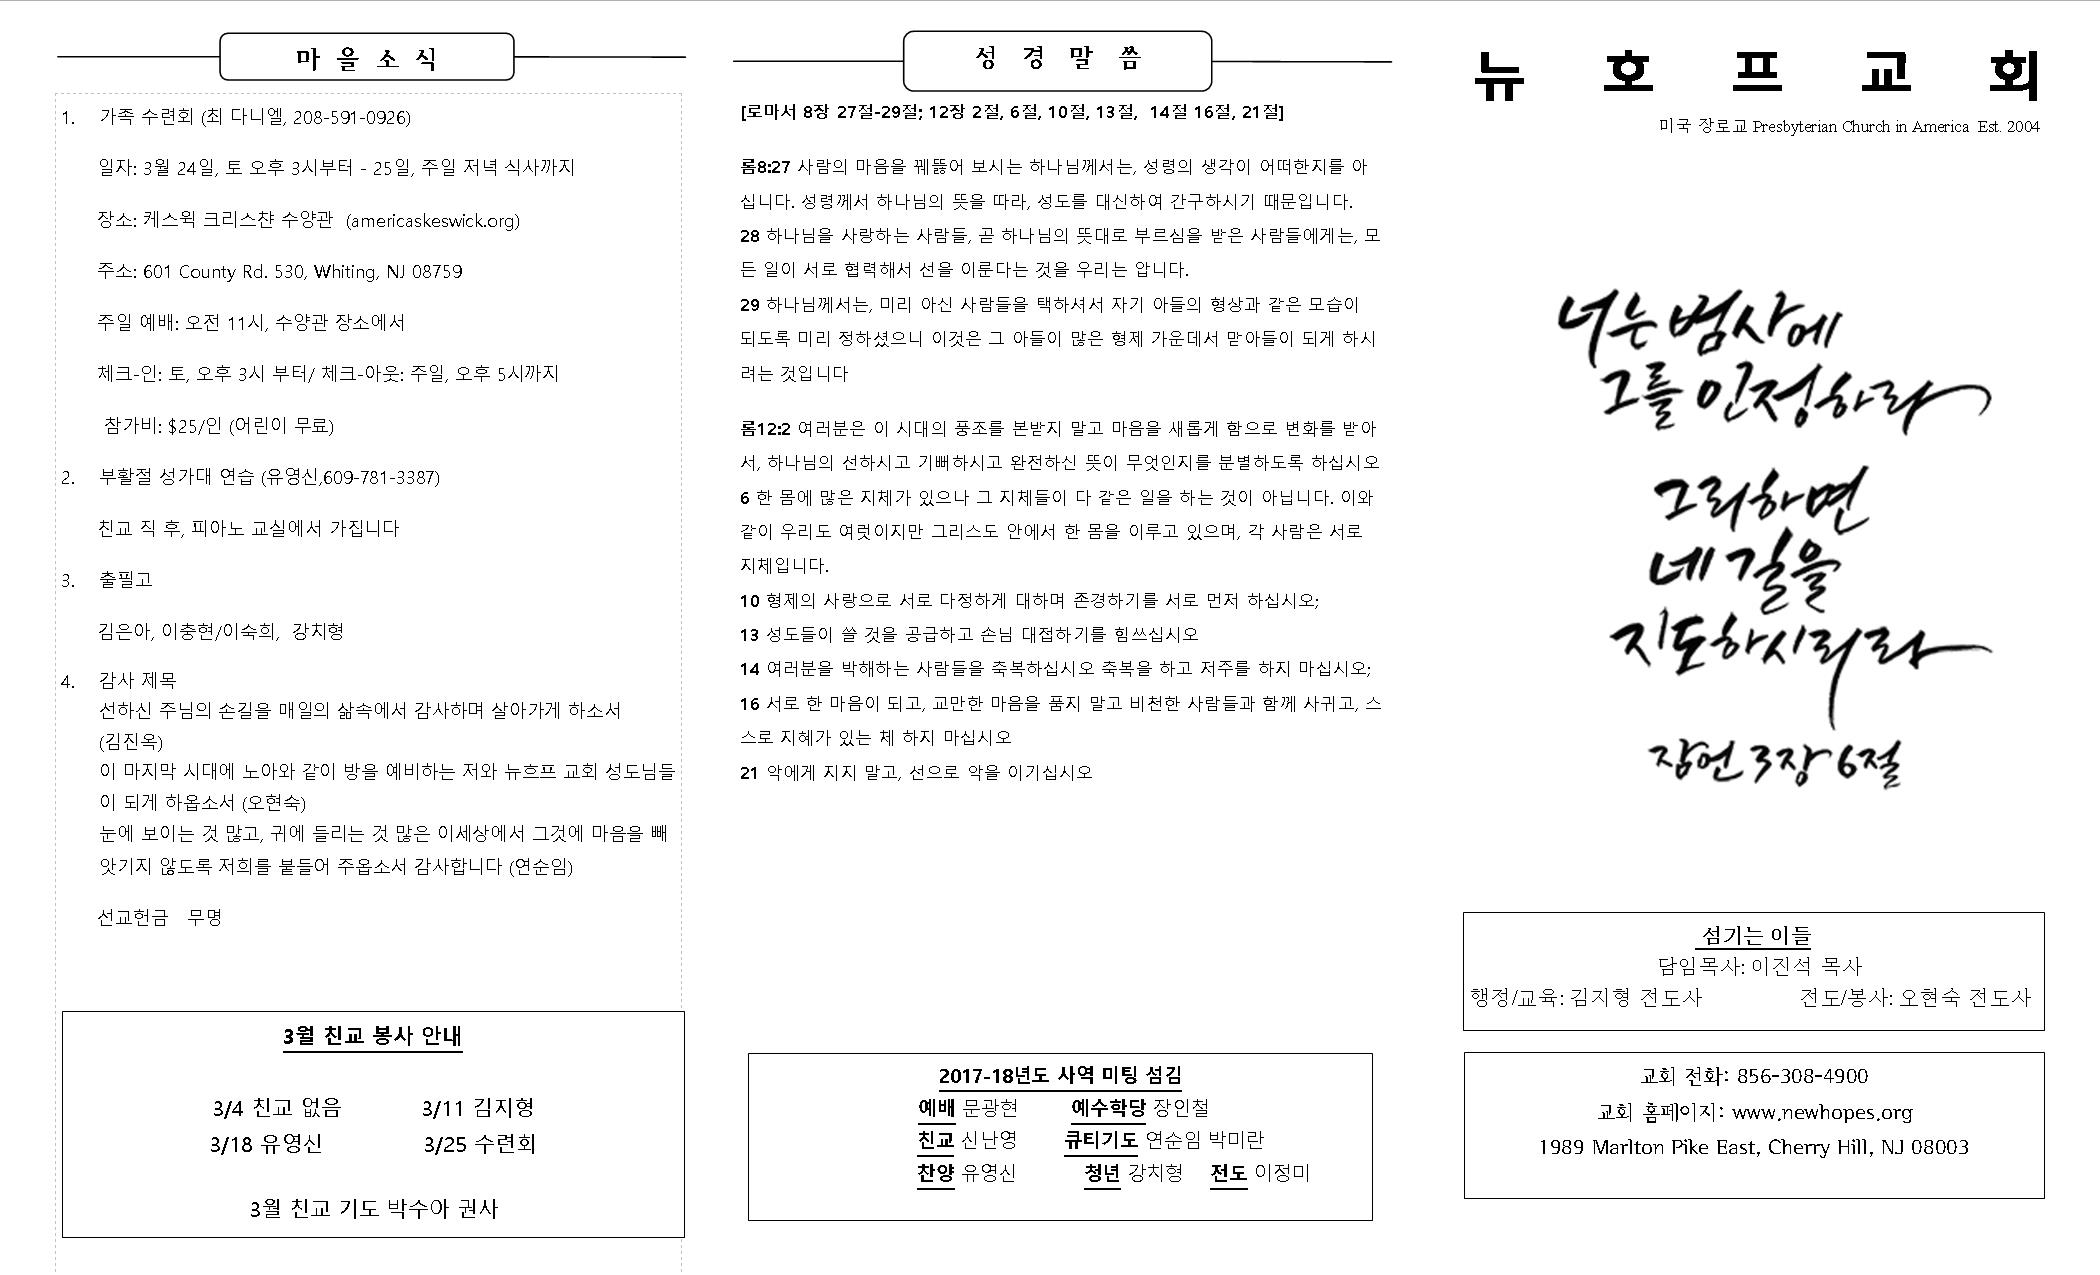 마 을 소 식
1. 가족 수련회 (최 다니엘, 208-591-0926)
일자: 3월 24일, 토 오후 3시부터 - 25일, 주일 저녁 식사까지
장소: 케스윅 크리스챤 수양관 (americaskeswick.org)
주소: 601 County Rd. 530, Whiting, NJ 08759
주일 예배: 오전 11시, 수양관 장소에서
체크-인: 토, 오후 3시 부터/ 체크-아웃: 주일, 오후 5시까지
참가비: $25/인 (어린이 무료)
2. 부활절 성가대 연습 (유영신,609-781-3387)
친교 직 후, 피아노 교실에서 가집니다
3. 출필고
김은아, 이충현/이숙희, 강치형
4. 감사 제목
선하신 주님의 손길을 매일의 삶속에서 감사하며 살아가게 하소서
(김진옥)
이 마지막 시대에 노아와 같이 방을 예비하는 저와 뉴흐프 교회 성도님들
이 되게 하옵소서 (오현숙)
눈에 보이는 것 많고, 귀에 들리는 것 많은 이세상에서 그것에 마음을 빼
앗기지 않도록 저희를 붙들어 주옵소서 감사합니다 (연순임)
선교헌금 무명
3월 친교 봉사 안내
3/4 친교 없음 3/11 김지형
3/18 유영신 3/25 수련회
3월 친교 기도 박수아 권사
성 경 말 씀
[로마서 8장 27절-29절; 12장 2절, 6절, 10절, 13절, 14절 16절, 21절]
롬8:27 사람의 마음을 꿰뚫어 보시는 하나님께서는, 성령의 생각이 어떠한지를 아
십니다. 성령께서 하나님의 뜻을 따라, 성도를 대신하여 간구하시기 때문입니다.
28 하나님을 사랑하는 사람들, 곧 하나님의 뜻대로 부르심을 받은 사람들에게는, 모
든 일이 서로 협력해서 선을 이룬다는 것을 우리는 압니다.
29 하나님께서는, 미리 아신 사람들을 택하셔서 자기 아들의 형상과 같은 모습이
되도록 미리 정하셨으니 이것은 그 아들이 많은 형제 가운데서 맏아들이 되게 하시
려는 것입니다
롬12:2 여러분은 이 시대의 풍조를 본받지 말고 마음을 새롭게 함으로 변화를 받아
서, 하나님의 선하시고 기뻐하시고 완전하신 뜻이 무엇인지를 분별하도록 하십시오
6 한 몸에 많은 지체가 있으나 그 지체들이 다 같은 일을 하는 것이 아닙니다. 이와
같이 우리도 여럿이지만 그리스도 안에서 한 몸을 이루고 있으며, 각 사람은 서로
지체입니다.
10 형제의 사랑으로 서로 다정하게 대하며 존경하기를 서로 먼저 하십시오;
13 성도들이 쓸 것을 공급하고 손님 대접하기를 힘쓰십시오
14 여러분을 박해하는 사람들을 축복하십시오 축복을 하고 저주를 하지 마십시오;
16 서로 한 마음이 되고, 교만한 마음을 품지 말고 비천한 사람들과 함께 사귀고, 스
스로 지혜가 있는 체 하지 마십시오
21 악에게 지지 말고, 선으로 악을 이기십시오
2017-18년도 사역 미팅 섬김
예배 문광현 예수학당 장인철
친교 신난영 큐티기도 연순임 박미란
찬양 유영신 청년 강치형 전도 이정미
뉴 호 프 교 회
미국 장로교 Presbyterian Church in America Est. 2004
너는 범사에
그를 인정하라
그리하면
네 길을
지도하시리라
잠언 3장 6절
섬기는 이들
담임목사: 이진석 목사
행정/교육: 김지형 전도사 전도/봉사: 오현숙 전도사
교회 전화: 856-308-4900
교회 홈페이지: www.newhopes.org
1989 Marlton Pike East, Cherry Hill, NJ 08003